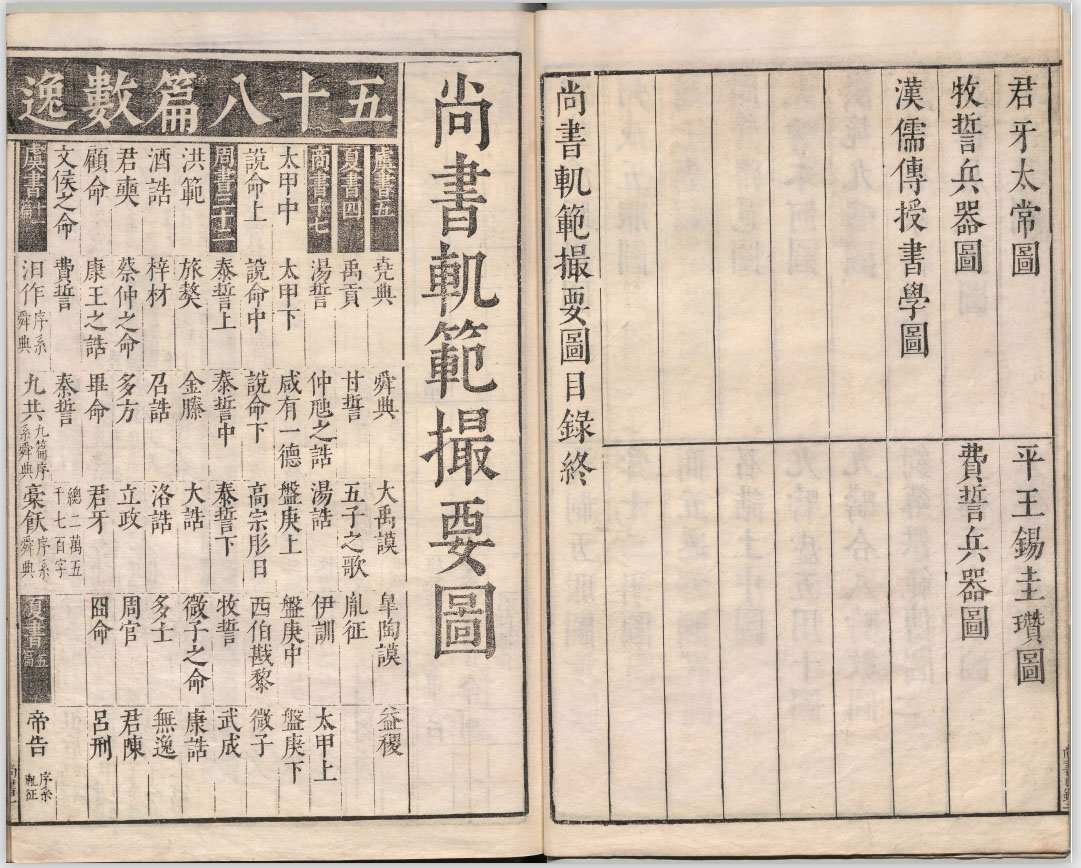 君牙太常圖 平王錫圭瓚圖
牧誓兵器圖 費誓兵器圖
漢儒傳授書學圖
尚書軓範撮要圖目錄終
尚書軓範撮要圖
五十八篇數逸
虞書五 堯典 舜典 大禹謨 皐陶謨 益稷
夏書四 禹貢 甘誓 五子之歌 胤征
商書十七 湯誓 仲虺之誥 湯誥 伊訓 太甲上
太甲中 太甲下 咸有一德 盤庚上 盤庚中 盤庚下
說命上 說命中 說命下 高宗肜日 西伯戡黎 微子
周書三十二 泰誓上 泰誓中 泰誓下 牧誓 武成
洪範 旅獒 金縢 大誥 微子之命 康誥
酒誥 梓材 召誥 洛誥 多士 無逸
君奭 蔡仲之命 多方 立政 周官 君陳
顧命 康王之誥 畢命 君牙 冏命 呂刑
文侯之命 費誓 秦誓 總二萬五千七百字
虞書十一篇 汨作 序系舜典 九共 九篇序系舜典 稾飫 序系舜典 夏書五篇 帝告 序系胤征